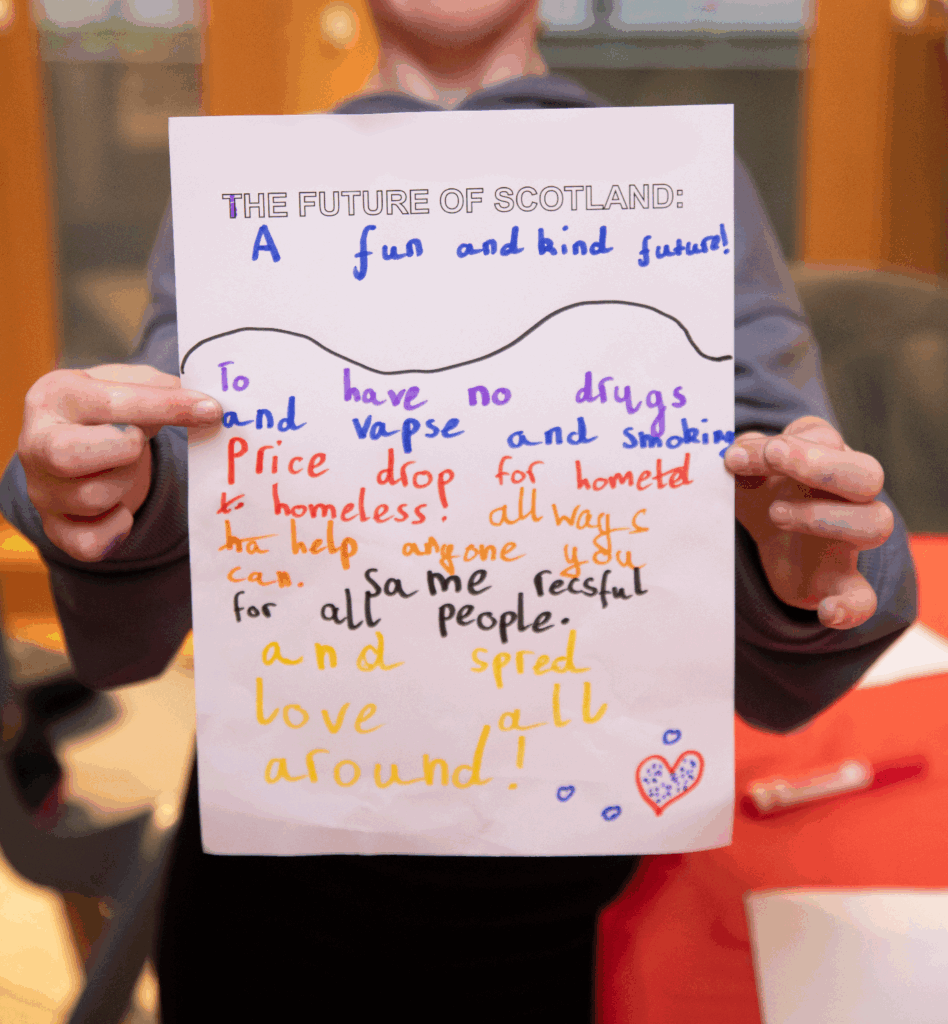 THE FUTURE OF SCOTLAND:
A fun and kind future!
To have no drugs
and vapse and smoking
Price drop for hometel
homeless! all ways
ha help anyone you
can. Same recsful
for all people.
and spred
love all
around!